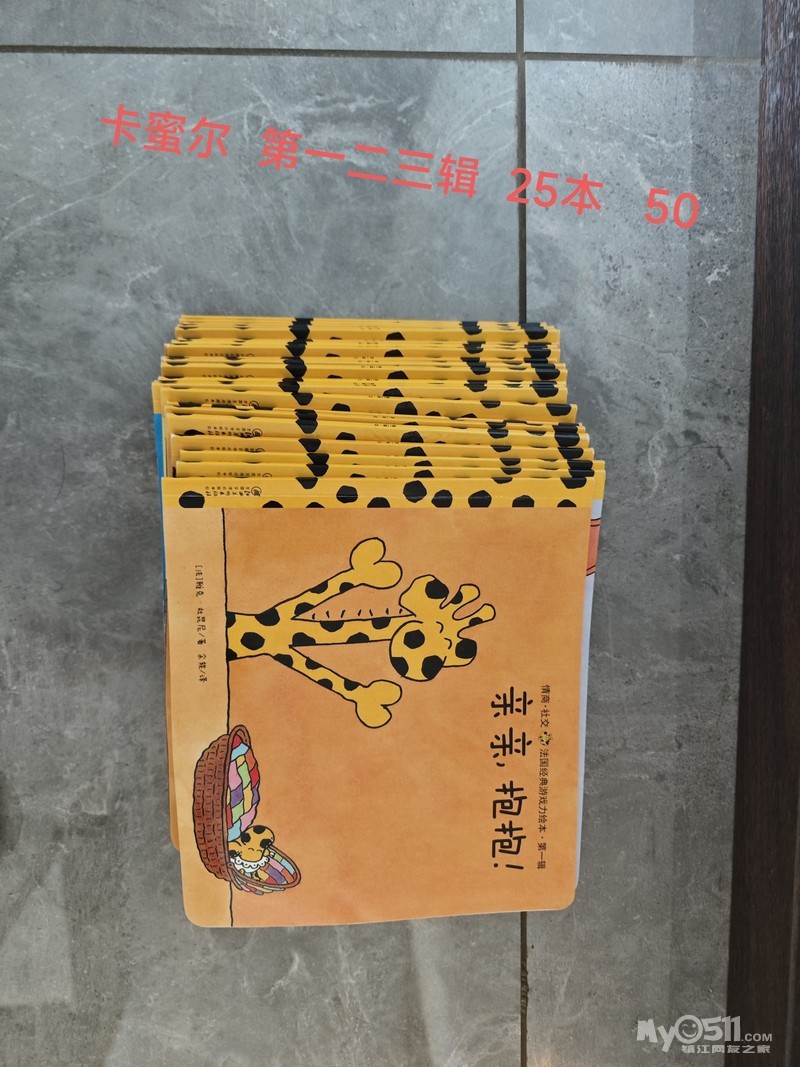 卡蜜尔 第一二三辑 25本 50
情商·社交 法国经典游戏力绘本·第一辑
亲亲,抱抱!
[法]斯克·杜昆尼/著 余轶/译
My0511.COM
镇江网友之家